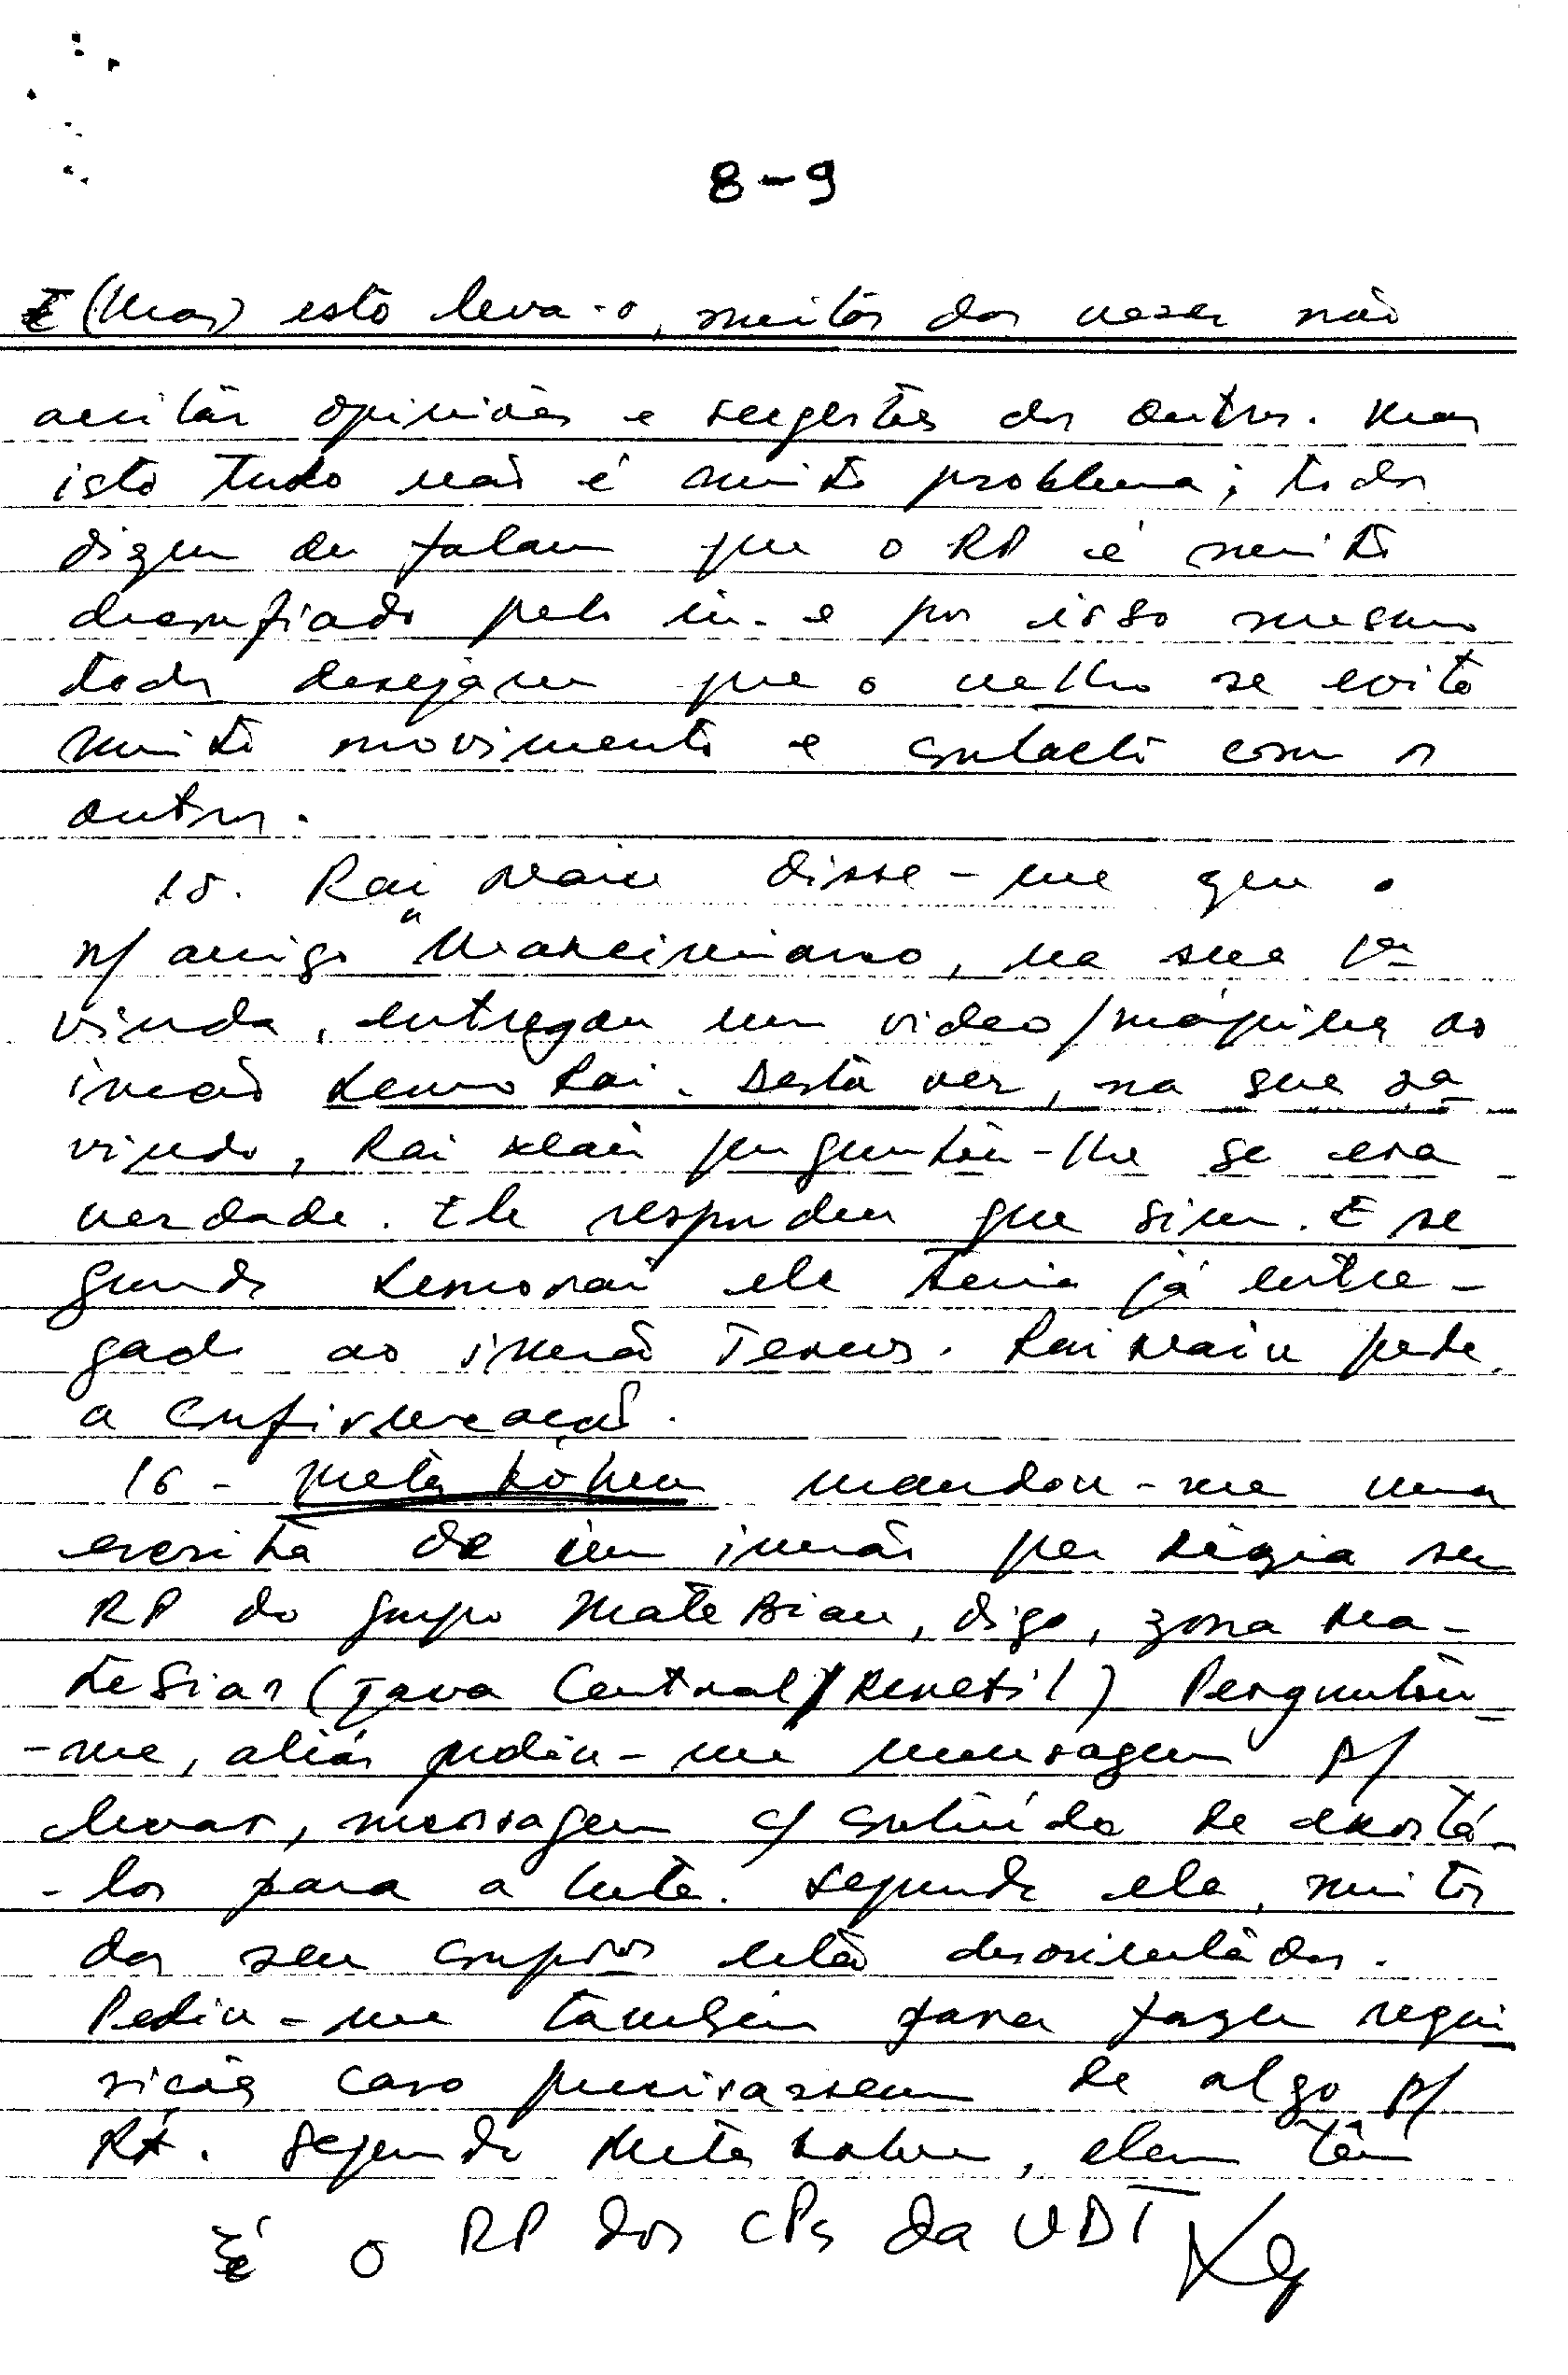 8-9
(Mas) isto leva-o, muitas das vezes não
aceitar opiniões e sugestões dos outros. Mas
isto tudo não é muito problema; todos
dizem ou falam que o RP é muito
desconfiado pelo in. e por isso mesmo
todos desejam que o velho se evite
muito movimento e contacto com os
outros.
15. Rai Nain disse-me que o
n/ amigo "Maximiano, na sua 1ª
vinda, entregou um video/máquina ao
irmão Lemo Rai. Desta vez, na sua 2ª
vinda, Rai Nain perguntou-lhe se era
verdade. Ele respondeu que sim. E se
gundo Lemorai ele teria já entre-
gado ao irmão Terus. Rai Nain pede
a confirmação.
16 - Meta Kohen mandou-me uma
escrita de um irmão que dizia ser
RP do grupo Mate Bian, digo, zona Ma-
tebian (Java Central/Renetil) Perguntou-
-me, aliás pediu-me mensagem p/
levar, mensagem c/ conteúdo de exortá-
-los para a luta. Segundo ele, muitos
dos seus compos estão desorientados.
Pediu-me também para fazer requi
sições caso precisassem de algo p/
RA. Segundo Meta Kohen, eles têm
É o RP dos CPs da UDT Xg